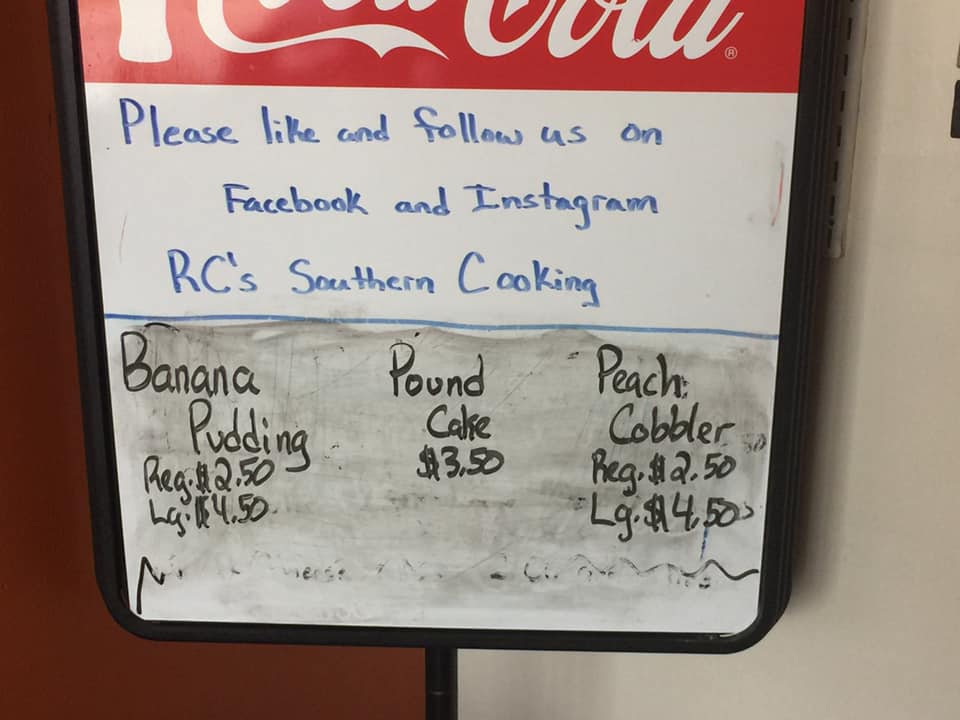 Coca-Cola®
Please like and follow us on
Facebook and Instagram
RC's Southern Cooking
Banana
Pudding
Reg. $2.50
Lg. $4.50
Pound
Cake
$3.50
Peach
Cobbler
Reg. $2.50
Lg. $4.50